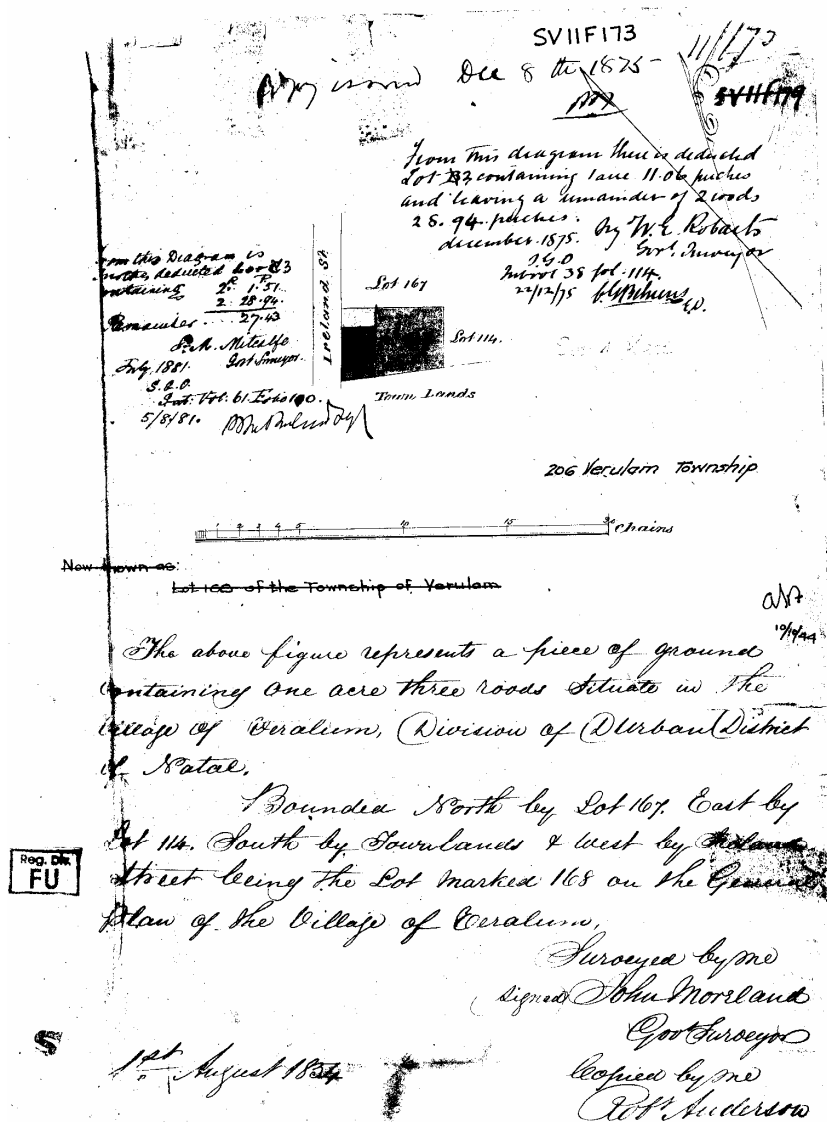 SV11F173
11/173
SV11F179
issued Dec 8th 1875
From this diagram there is deducted
Lot B2 containing 1 acre 11.06 perches
and leaving a remainder of 2 roods
28.94 perches.
December 1875. W. E. Robarts
Govt. Surveyor
S.G.O
fol. 114.
22/12/75
From this Diagram is
further deducted Lot C3
containing 2R. 1.51P.
2. 28.94.
Remainder .... 27.43
P. M. Metcalfe
July, 1881. Govt Surveyor.
S.G.O.
Vol. 61 Folio 100.
5/8/81.
Ireland St.
Lot 167
Lot 114.
Town Lands
206 Verulam Township
1 2 3 4 5 10 15 20 Chains
Now known as:
Lot 168 of the Township of Verulam
10/10/44
The above figure represents a piece of ground
containing one acre three roods Situate in the
Village of Veralum, Division of D'Urban District
of Natal.
Bounded North by Lot 167. East by
Lot 114. South by Townlands & West by Ireland
Street being the Lot marked 168 on the General
Plan of the Village of Veralum.
Reg. Div.
FU
Surveyed by me
signed John Moreland
Govt Surveyor
S
1st August 1854
Copied by me
Robt Anderson